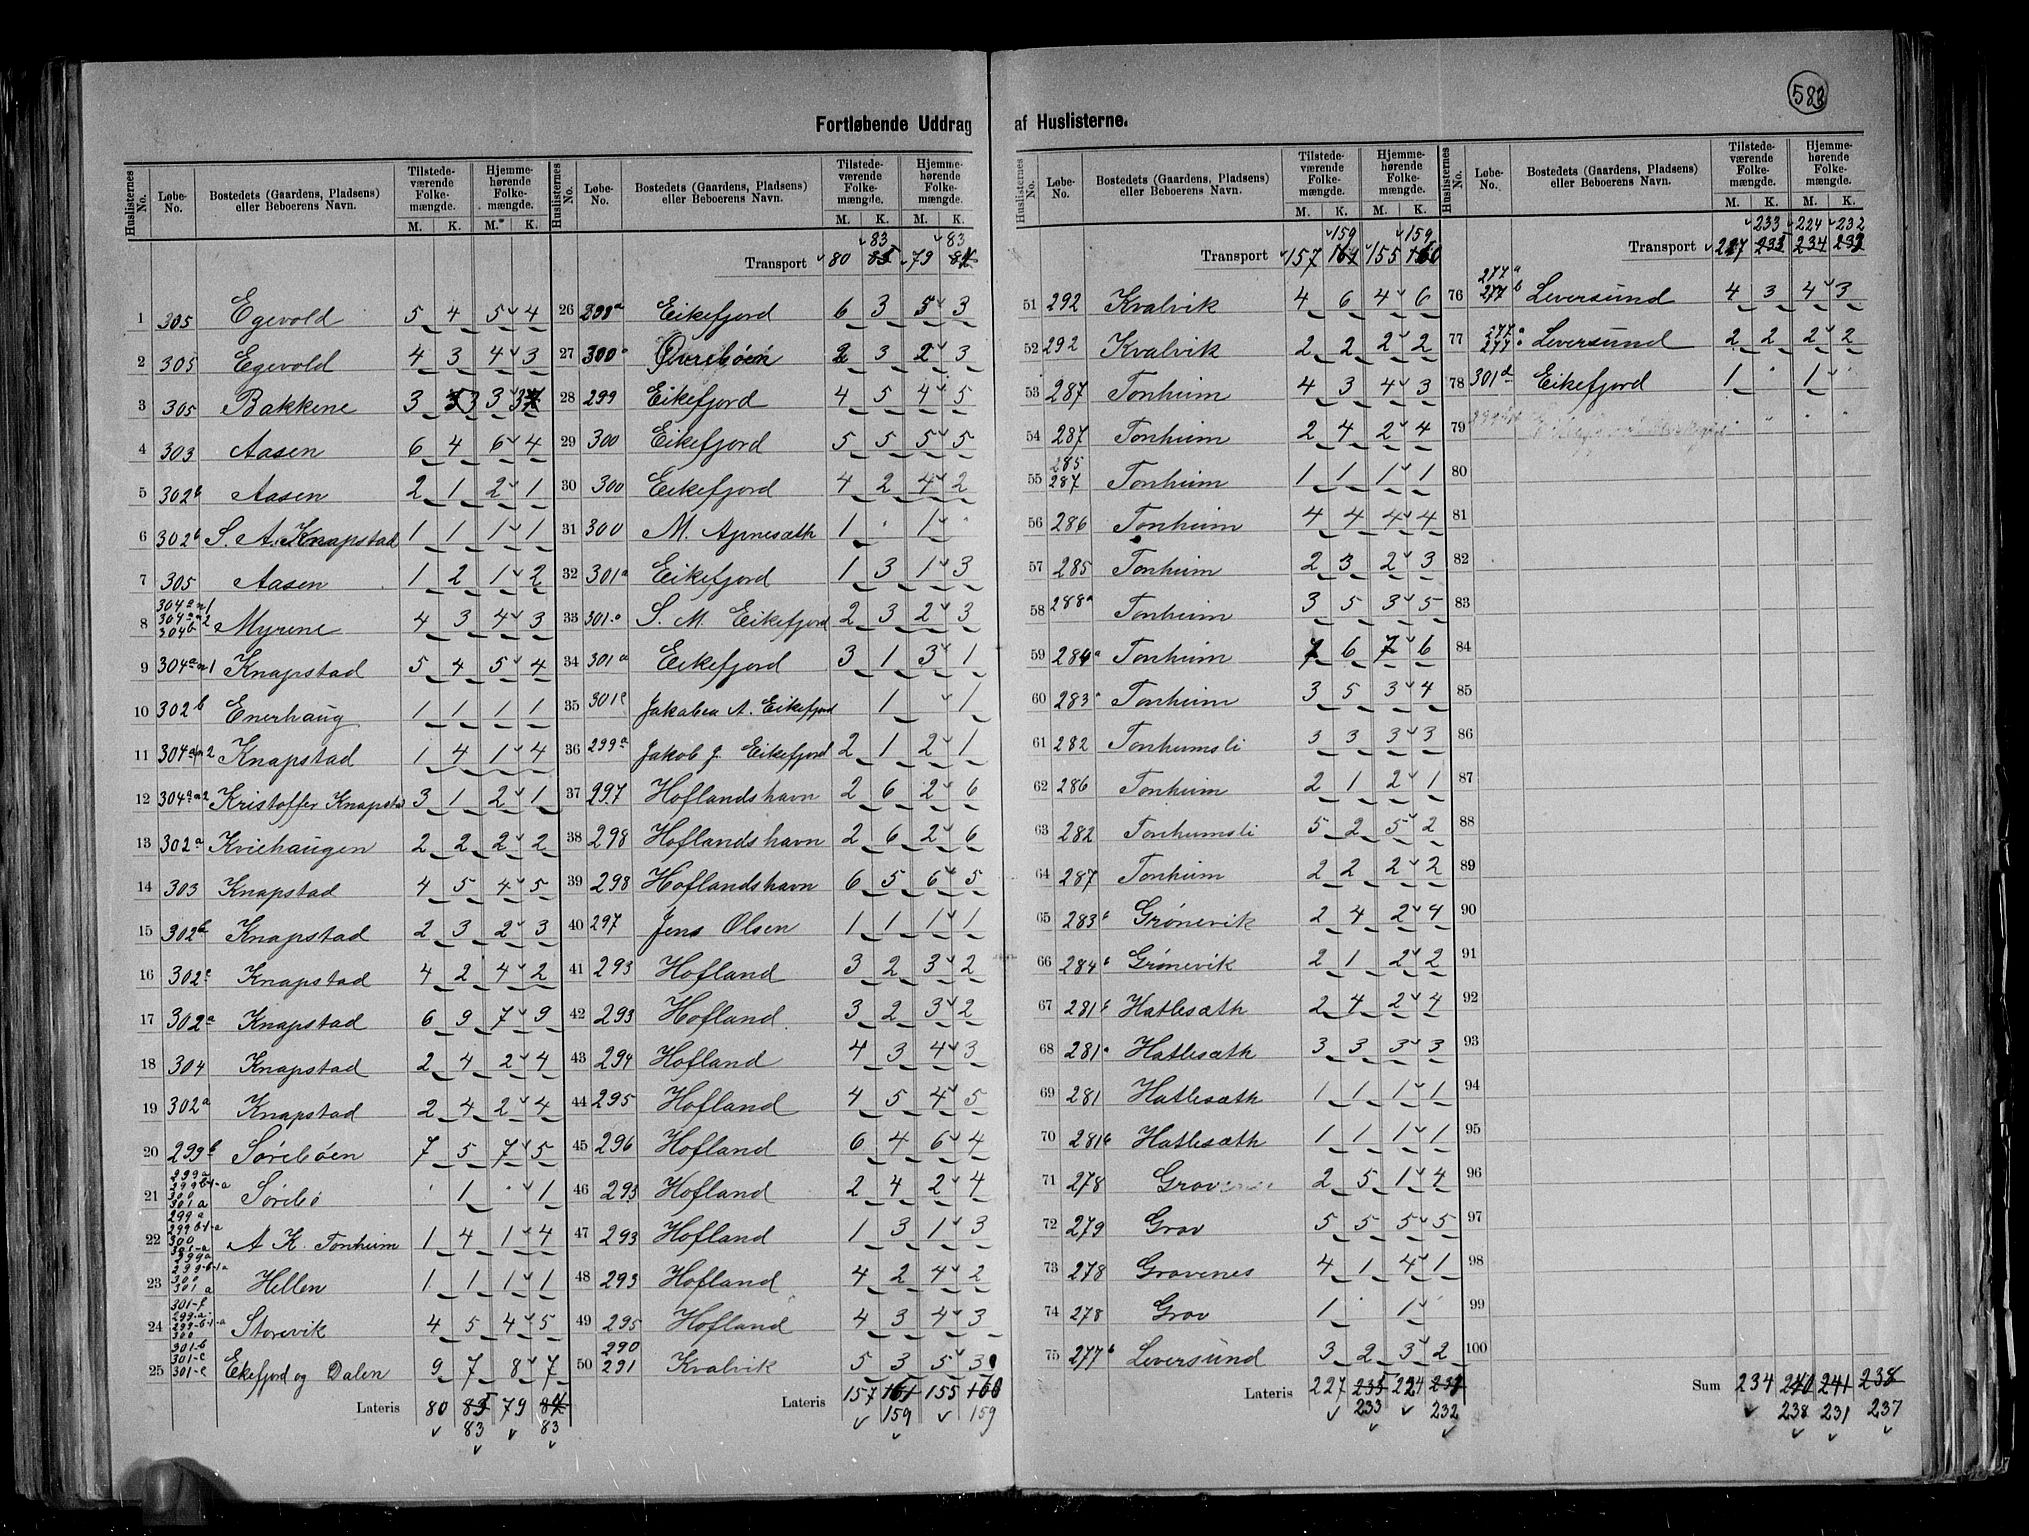 583
Fortløbende Uddrag af Huslisterne.
Huslisternes No. Løbe-No. Bostedets (Gaardens, Pladsens) eller Beboerens Navn. Tilstedeværende Folkemængde. M. K. Hjemmehørende Folkemængde. M. K.
1 305 Egevold 5 4 5 4
2 305 Egevold 4 3 4 3
3 305 Bakkene 3 3 3 3
4 303 Aasen 6 4 6 4
5 302b Aasen 2 1 2 1
6 302b S. A. Knapstad 1 1 1 1
7 305 Aasen 1 2 1 2
8 304a-1 304a-2 304b Myrene 4 3 4 3
9 304a-1 Knapstad 5 4 5 4
10 302b Enerhaug 1 1 1 1
11 304a-2 Knapstad 1 4 1 4
12 304a-2 Kristoffer Knapstad 3 1 2 1
13 302a Kviehaugen 2 2 2 2
14 303 Knapstad 4 5 4 5
15 302b Knapstad 2 3 2 3
16 302c Knapstad 4 2 4 2
17 302a Knapstad 6 9 7 9
18 304 Knapstad 2 4 2 4
19 302a Knapstad 2 4 2 4
20 299b Sørebøen 7 5 7 5
21 299a 299b-1-a 300 301a Sørebø " 1 " 1
22 299a 299b-1-a 300 301-a A K. Tonheim 1 4 1 4
23 299a 299-b-1a 300 301a Hellen 1 1 1 1
24 301-f 299-a 299-b-1-a 300 Storevik 4 5 4 5
25 301-b 301-c 301-e Eikefjord og Dalen 9 7 8 7
Lateris 80 85 79 84
83 83
Huslisternes No. Løbe-No. Bostedets (Gaardens, Pladsens) eller Beboerens Navn. Tilstedeværende Folkemængde. M. K. Hjemmehørende Folkemængde. M. K.
83 83
Transport 80 85 79 84
26 299a Eikefjord 6 3 5 3
27 300 Øvrebøen 2 3 2 3
28 299 Eikefjord 4 5 4 5
29 300 Eikefjord 5 5 5 5
30 300 Eikefjord 4 2 4 2
31 300 M. Apnesæth 1 " 1 "
32 301a Eikefjord 1 3 1 3
33 301 S. M. Eikefjord 2 3 2 3
34 301a Eikefjord 3 1 3 1
35 301e Jakobea A. Eikefjord 1 1
36 299a Jakob J. Eikefjord 2 1 2 1
37 297 Hoflandshavn 2 6 2 6
38 298 Hoflandshavn 2 6 2 6
39 298 Hoflandshavn 6 5 6 5
40 297 Jens Olsen 1 1 1 1
41 293 Hofland 3 2 3 2
42 293 Hofland 3 2 3 2
43 294 Hofland 4 3 4 3
44 295 Hofland 4 5 4 5
45 296 Hofland 6 4 6 4
46 295 Hofland 2 4 2 4
47 293 Hofland 1 3 1 3
48 293 Hofland 4 2 4 2
49 295 Hofland 4 3 4 3
50 290 291 Kvalvik 5 3 5 3
Lateris 157 161 155 160
159 159
Huslisternes No. Løbe-No. Bostedets (Gaardens, Pladsens) eller Beboerens Navn. Tilstedeværende Folkemængde. M. K. Hjemmehørende Folkemængde. M. K.
159 159
Transport 157 161 155 160
51 292 Kvalvik 4 6 4 6
52 292 Kvalvik 2 2 2 2
53 287 Tonheim 4 3 4 3
54 287 Tonheim 2 4 2 4
55 285 287 Tonheim 1 1 1 1
56 286 Tonheim 4 4 4 4
57 285 Tonheim 2 3 2 3
58 288a Tonheim 3 5 3 5
59 284a Tonheim 7 6 7 6
60 283a Tonheim 3 5 3 4
61 282 Tonheimsli 3 3 3 3
62 286 Tonheim 2 1 2 1
63 282 Tonheimsli 5 2 5 2
64 287 Tonheim 2 2 2 2
65 283b Grønevik 2 4 2 4
66 284b Grønevik 2 1 2 2
67 281b Hatlesæth 2 4 2 4
68 281a Hatlesæth 3 3 3 3
69 281 Hatlesæth 1 1 1 1
70 281b Hatlesæth 1 1 1 1
71 278 Grov 2 5 1 4
72 279 Grov 5 5 5 5
73 278 Grovenes 4 1 4 1
74 278 Grov 1 1
75 277b Leversund 3 2 3 2
Lateris 227 235 224 233
233 232
Huslisternes No. Løbe-No. Bostedets (Gaardens, Pladsens) eller Beboerens Navn. Tilstedeværende Folkemængde. M. K. Hjemmehørende Folkemængde. M. K.
233 224 232
Transport 227 235 234 233
76 277a 277b Leversund 4 3 4 3
77 277a 277 Leversund 2 2 2 2
78 301d Eikefjord 1 " 1 "
79 " " "
80
81
82
83
84
85
86
87
88
89
90
91
92
93
94
95
96
97
98
99
100
Sum 234 240 241 238
238 231 237